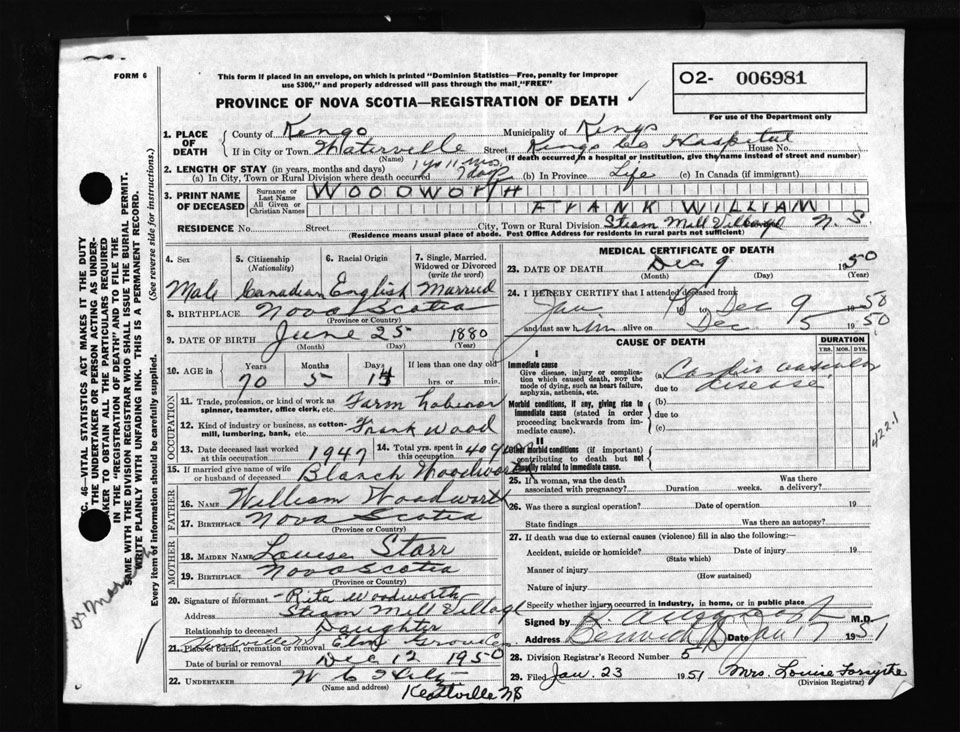 FORM 6
This form if placed in an envelope, on which is printed "Dominion Statistics—Free, penalty for improper
use $300," and properly addressed will pass through the mail, "FREE"
O2- 006981
For use of the Department only
PROVINCE OF NOVA SCOTIA—REGISTRATION OF DEATH
1. PLACE OF DEATH { County of Kings Municipality of Kings
If in City or Town Waterville Street Kings Co Hospital House No.
(Name) (If death occurred in a hospital or institution, give the name instead of street and number)
2. LENGTH OF STAY (in years, months and days) 1 yr 11 mos.
(a) In City, Town or Rural Division where death occurred 7 days (b) In Province Life (c) In Canada (if immigrant)
3. PRINT NAME OF DECEASED { Surname or Last Name WOODWORTH
All Given or Christian Names FRANK WILLIAM
RESIDENCE No. Street City, Town or Rural Division Steam Mill Village N. S.
(Residence means usual place of abode. Post Office Address for residents in rural parts not sufficient)
4. Sex 5. Citizenship (Nationality) 6. Racial Origin 7. Single, Married, Widowed or Divorced (write the word)
Male Canadian English Married
8. BIRTHPLACE Nova Scotia
(Province or Country)
9. DATE OF BIRTH June 25 1880
(Month) (Day) (Year)
10. AGE in { Years Months Days If less than one day old
70 5 14 hrs. or min.
OCCUPATION
11. Trade, profession, or kind of work as spinner, teamster, office clerk, etc. Farm Laborer
12. Kind of industry or business, as cotton-mill, lumbering, bank, etc. Frank Wood
13. Date deceased last worked at this occupation 1947 14. Total yrs. spent in this occupation 40 years
15. If married give name of wife or husband of deceased Blanch Woodworth
FATHER
16. NAME William Woodworth
17. BIRTHPLACE Nova Scotia
(Province or Country)
MOTHER
18. MAIDEN NAME Louise Starr
19. BIRTHPLACE Nova Scotia
(Province or Country)
20. Signature of informant Rita Woodworth
Address Steam Mill Village
Relationship to deceased Daughter
21. Place of burial, cremation or removal Elm Grove
Date of burial or removal Dec 12 1950
22. UNDERTAKER W C Hiltz
(Name and address) Kentville NS
MEDICAL CERTIFICATE OF DEATH
23. DATE OF DEATH Dec 9 1950
(Month) (Day) (Year)
24. I HEREBY CERTIFY that I attended deceased from
Jan to Dec 9 1950
and last saw him alive on Dec 5 1950
CAUSE OF DEATH DURATION
YRS. MOS. DYS.
I
Immediate cause
Give disease, injury or complication which caused death, NOT the mode of dying, such as heart failure, asphyxia, asthenia, etc.
(a) Cardio vascular
due to disease
Morbid conditions, if any, giving rise to immediate cause (stated in order proceeding backwards from immediate cause).
(b)
due to
(c)
II
Other morbid conditions (if important) contributing to death but not causally related to immediate cause.
422.1
25. If a woman, was the death associated with pregnancy? Duration weeks. Was there a delivery?
26. Was there a surgical operation? Date of operation 19
State findings Was there an autopsy?
27. If death was due to external causes (violence) fill in also the following:
Accident, suicide or homicide? Date of injury 19
(State which)
Manner of injury
(How sustained)
Nature of injury
Specify whether injury occurred in industry, in home, or in public place
Signed by M.D.
Address Berwick Date Jan 17 1951
28. Division Registrar's Record Number 5
29. Filed Jan. 23 1951 Mrs. Louise Forsythe
(Division Registrar)
C. 46—VITAL STATISTICS ACT MAKES IT THE DUTY
THE UNDERTAKER OR PERSON ACTING AS UNDER-
TAKER TO OBTAIN ALL THE PARTICULARS REQUIRED
IN THE "REGISTRATION OF DEATH" AND TO FILE THE
SAME WITH THE DIVISION REGISTRAR WHO SHALL ISSUE THE BURIAL PERMIT.
WRITE PLAINLY WITH UNFADING INK. THIS IS A PERMANENT RECORD.
Every item of information should be carefully supplied. (See reverse side for instructions.)